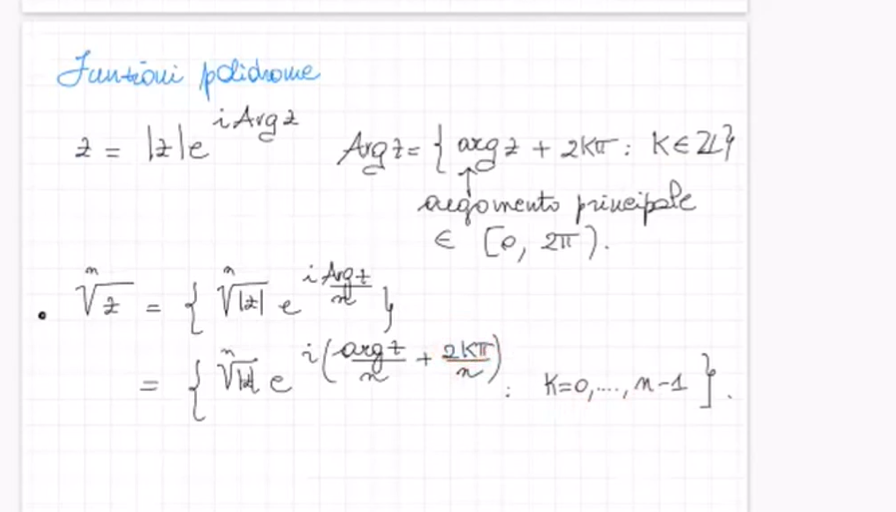 Funzioni polidrome
z = |z| e^{i Arg z}   Arg z = { arg z + 2kπ : k ∈ ℤ }
↑
argomento principale
∈ [0, 2π).
• ⁿ√z = { ⁿ√|z| e^{i Arg z / n} }
= { ⁿ√|z| e^{i (arg z / n + 2kπ / n)} : k=0,...., n-1 }.